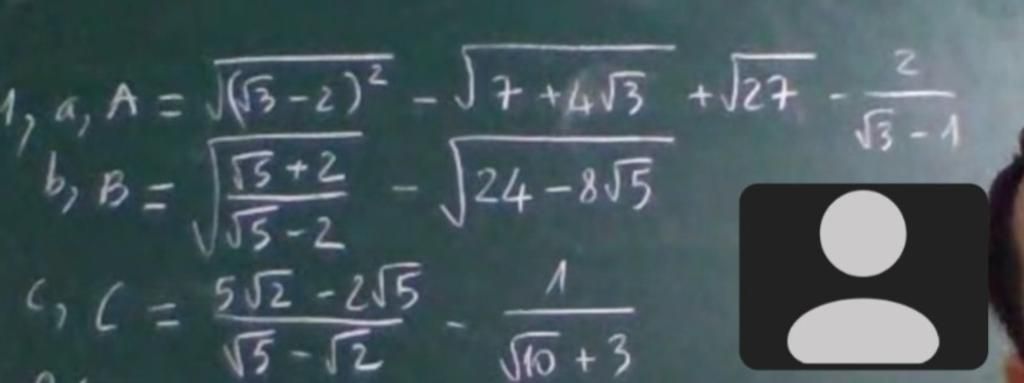 1, a, A = √(√3 - 2)² - √7 + 4√3 + √27 - 2/(√3 - 1)
b, B = √((√5 + 2)/(√5 - 2)) - √24 - 8√5
c, C = (5√2 - 2√5)/(√5 - √2) - 1/(√10 + 3)